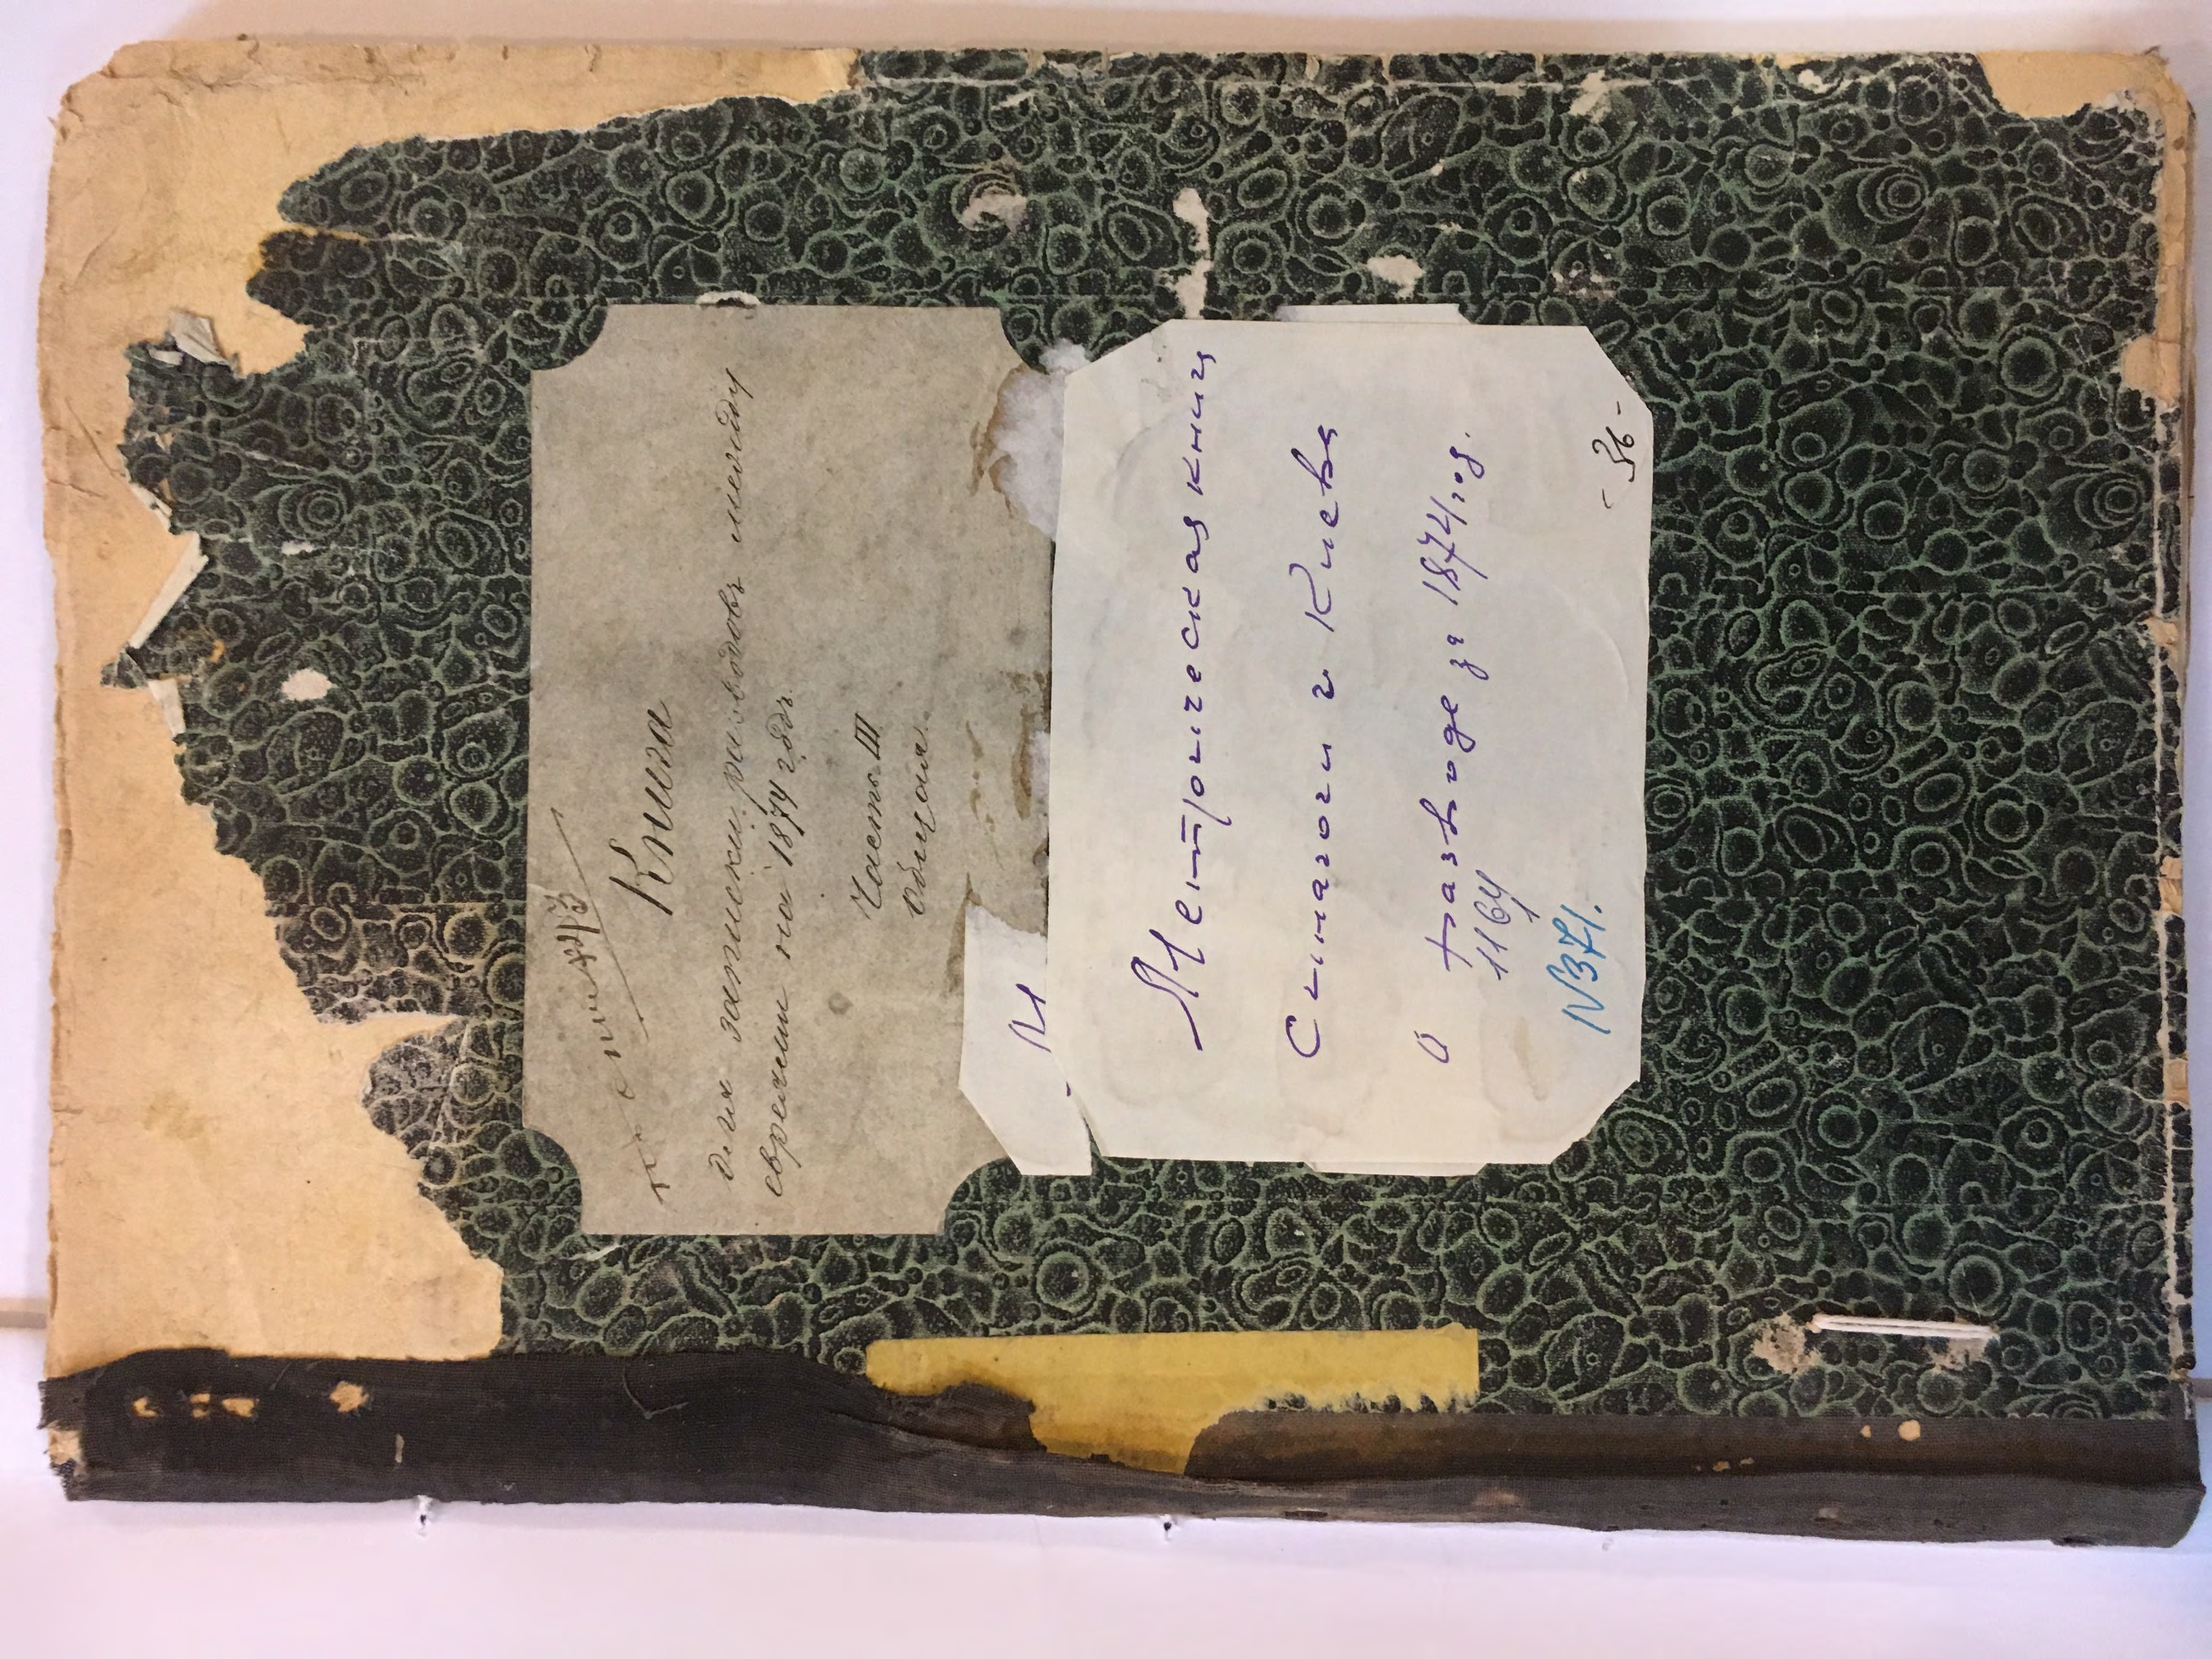 Книга
для записки разводовъ между
евреями на 1874 годъ.
Часть III
общая.
М
Метрическая книга
Синагоги г Киева
о разводе за 1874 год.
1164
N371.
- 36 -